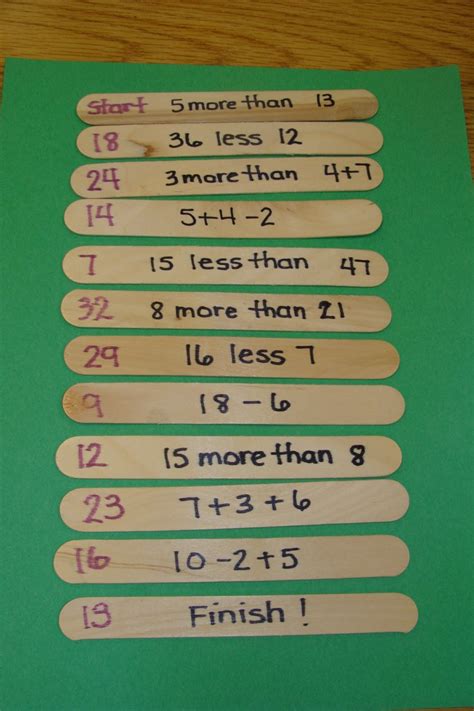 Start 5 more than 13
18 36 less 12
24 3 more than 4+7
14 5+4-2
7 15 less than 47
32 8 more than 21
29 16 less 7
9 18-6
12 15 more than 8
23 7+3+6
16 10-2+5
13 Finish!